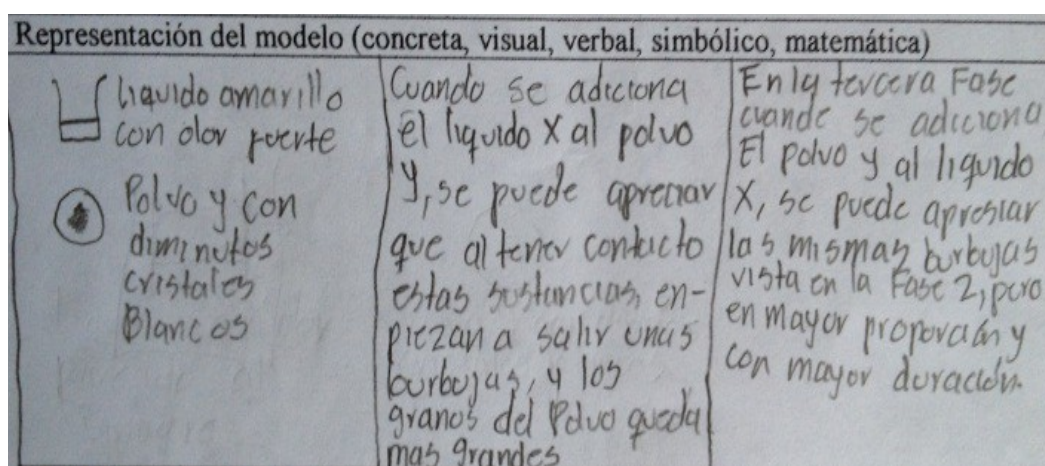 Representación del modelo (concreta, visual, verbal, simbólico, matemática)
liquido amarillo
con olor fuerte
Polvo y con
diminutos
cristales
Blancos
Cuando se adiciona
el liquido X al polvo
y, se puede apreciar
que al tener contacto
estas sustancias, en-
piezan a salir unas
burbujas, y los
granos del Polvo queda
mas grandes
En la tercera Fase
cuando se adiciona
El polvo y al liquido
X, se puede apresiar
las mismas burbujas
vista en la Fase 2, pero
en mayor proporción y
con mayor duración.